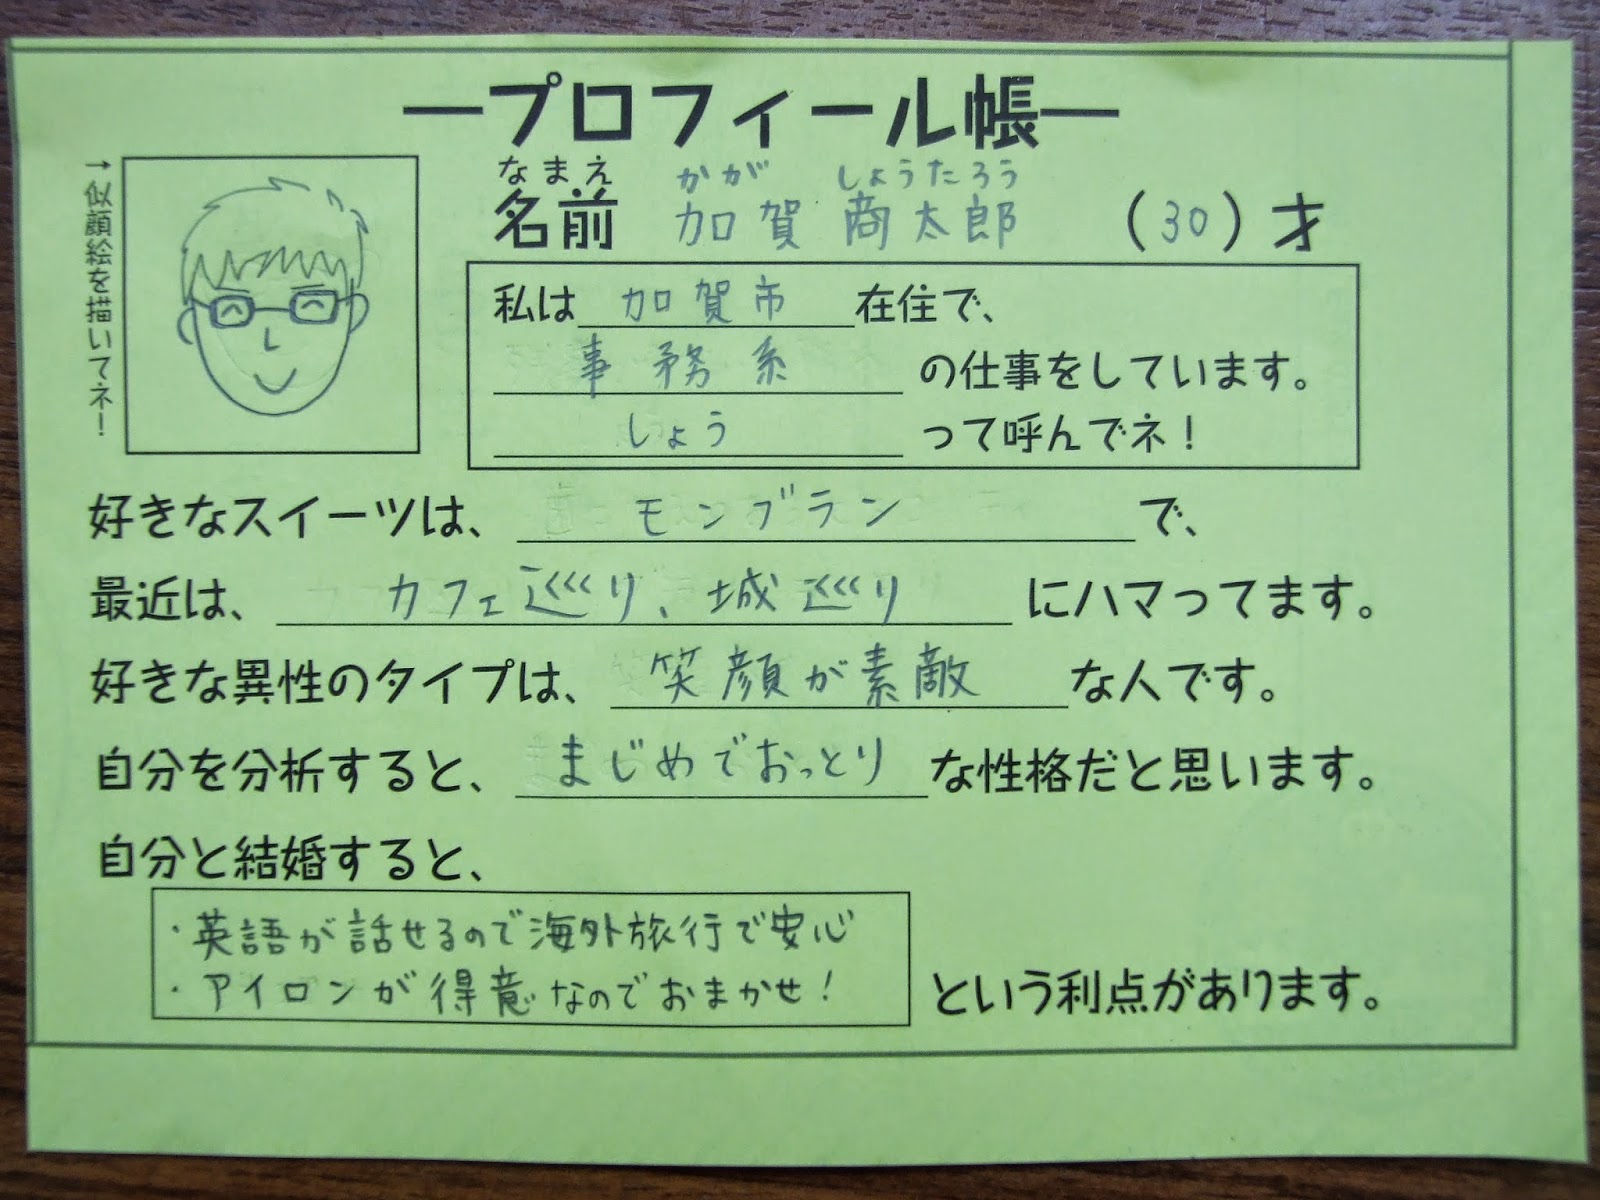 ―プロフィール帳―
→似顔絵を描いてネ！
なまえ かが しょうたろう
名前 加賀 商太郎 （30）才
私は 加賀市 在住で、
事務系 の仕事をしています。
しょう って呼んでネ！
好きなスイーツは、 モンブラン で、
最近は、 カフェ巡り、城巡り にハマってます。
好きな異性のタイプは、 笑顔が素敵 な人です。
自分を分析すると、 まじめでおっとり な性格だと思います。
自分と結婚すると、
・英語が話せるので海外旅行で安心
・アイロンが得意なのでおまかせ！ という利点があります。